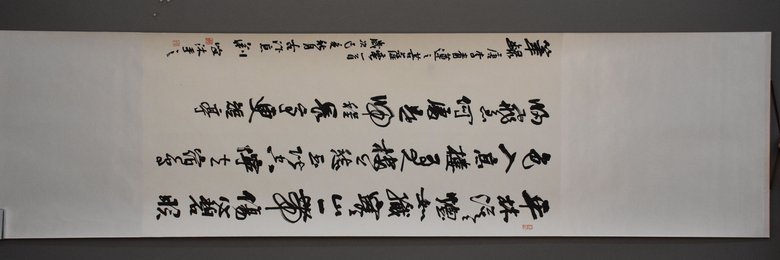 平林漠漠煙如織寒山一帶傷心碧暝
色入高樓有人樓上愁玉階空佇立宿鳥
歸飛急何處是歸程長亭更短亭
唐李青蓮之菩薩蠻一首
歲次